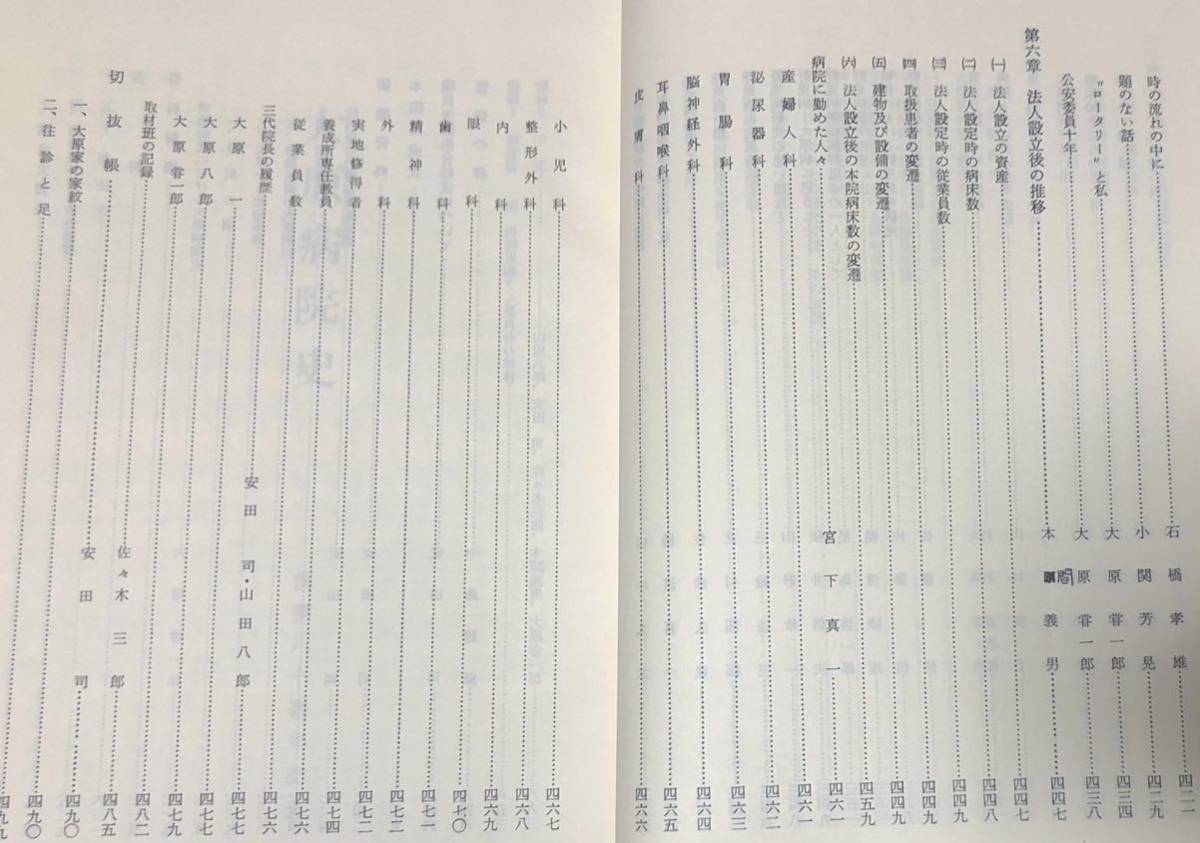 時の流れの中に……石橋孝雄……四二二
題のない話……小関芳晃……四二九
〝ロータリー〟と私……大原甞一郎……四三四
公安委員十年……大原甞一郎……四三八
第六章 法人設立後の推移……本 義男……四四七
㈠ 法人設立の資産……四四七
㈡ 法人設定時の病床数……四四八
㈢ 法人設定時の従業員数……四四九
㈣ 取扱患者の変遷……四四九
㈤ 建物及び設備の変遷……四四九
㈥ 法人設立後の本院病床数の変遷……四五九
病院に勤めた人々……宮下真一……四六一
産婦人科……四六一
泌尿器科……四六二
胃腸科……四六三
脳神経外科……四六四
耳鼻咽喉科……四六五
皮膚科……四六六
小児科……四六七
整形外科……四六八
内科……四六九
眼科……四七〇
歯科……四七一
精神科……四七二
外科……四七二
実地修得者……四七四
養成所専任教員……四七六
従業員数……四七六
三代院長の履歴……安田 司・山田八郎……四七七
大原 一……四七七
大原八郎……四七九
大原甞一郎……四八二
取材班の記録……佐々木三郎……四八五
切抜帳……安田 司……四九〇
一、大原家の家紋……四九〇
二、往診と足……四九九